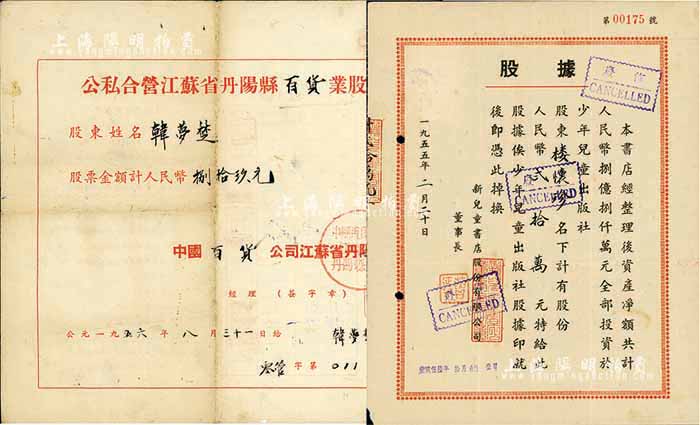 上海陽明拍賣
公私合營江蘇省丹陽縣百貨業股
股東姓名 韓夢楚
股票金額計人民幣 捌拾玖元
中國百貨公司江蘇省丹陽
經理（簽字章）
公元一九五六年八月三十一日給
韓夢
字第 011
第 00175 號
股據
CANCELLED
本書店經整理後資產淨額共計
人民幣捌億捌仟萬元全部投資於
少年兒童出版社
股東 樓懷珍 名下計有股份
人民幣 貳拾萬 元特給此
股據俟少年兒童出版社股據印就
後即憑此掉換
新兒童書店股份有限公司
董事長
一九五五年二月二十日
CANCELLED
CANCELLED
上海陽明拍賣